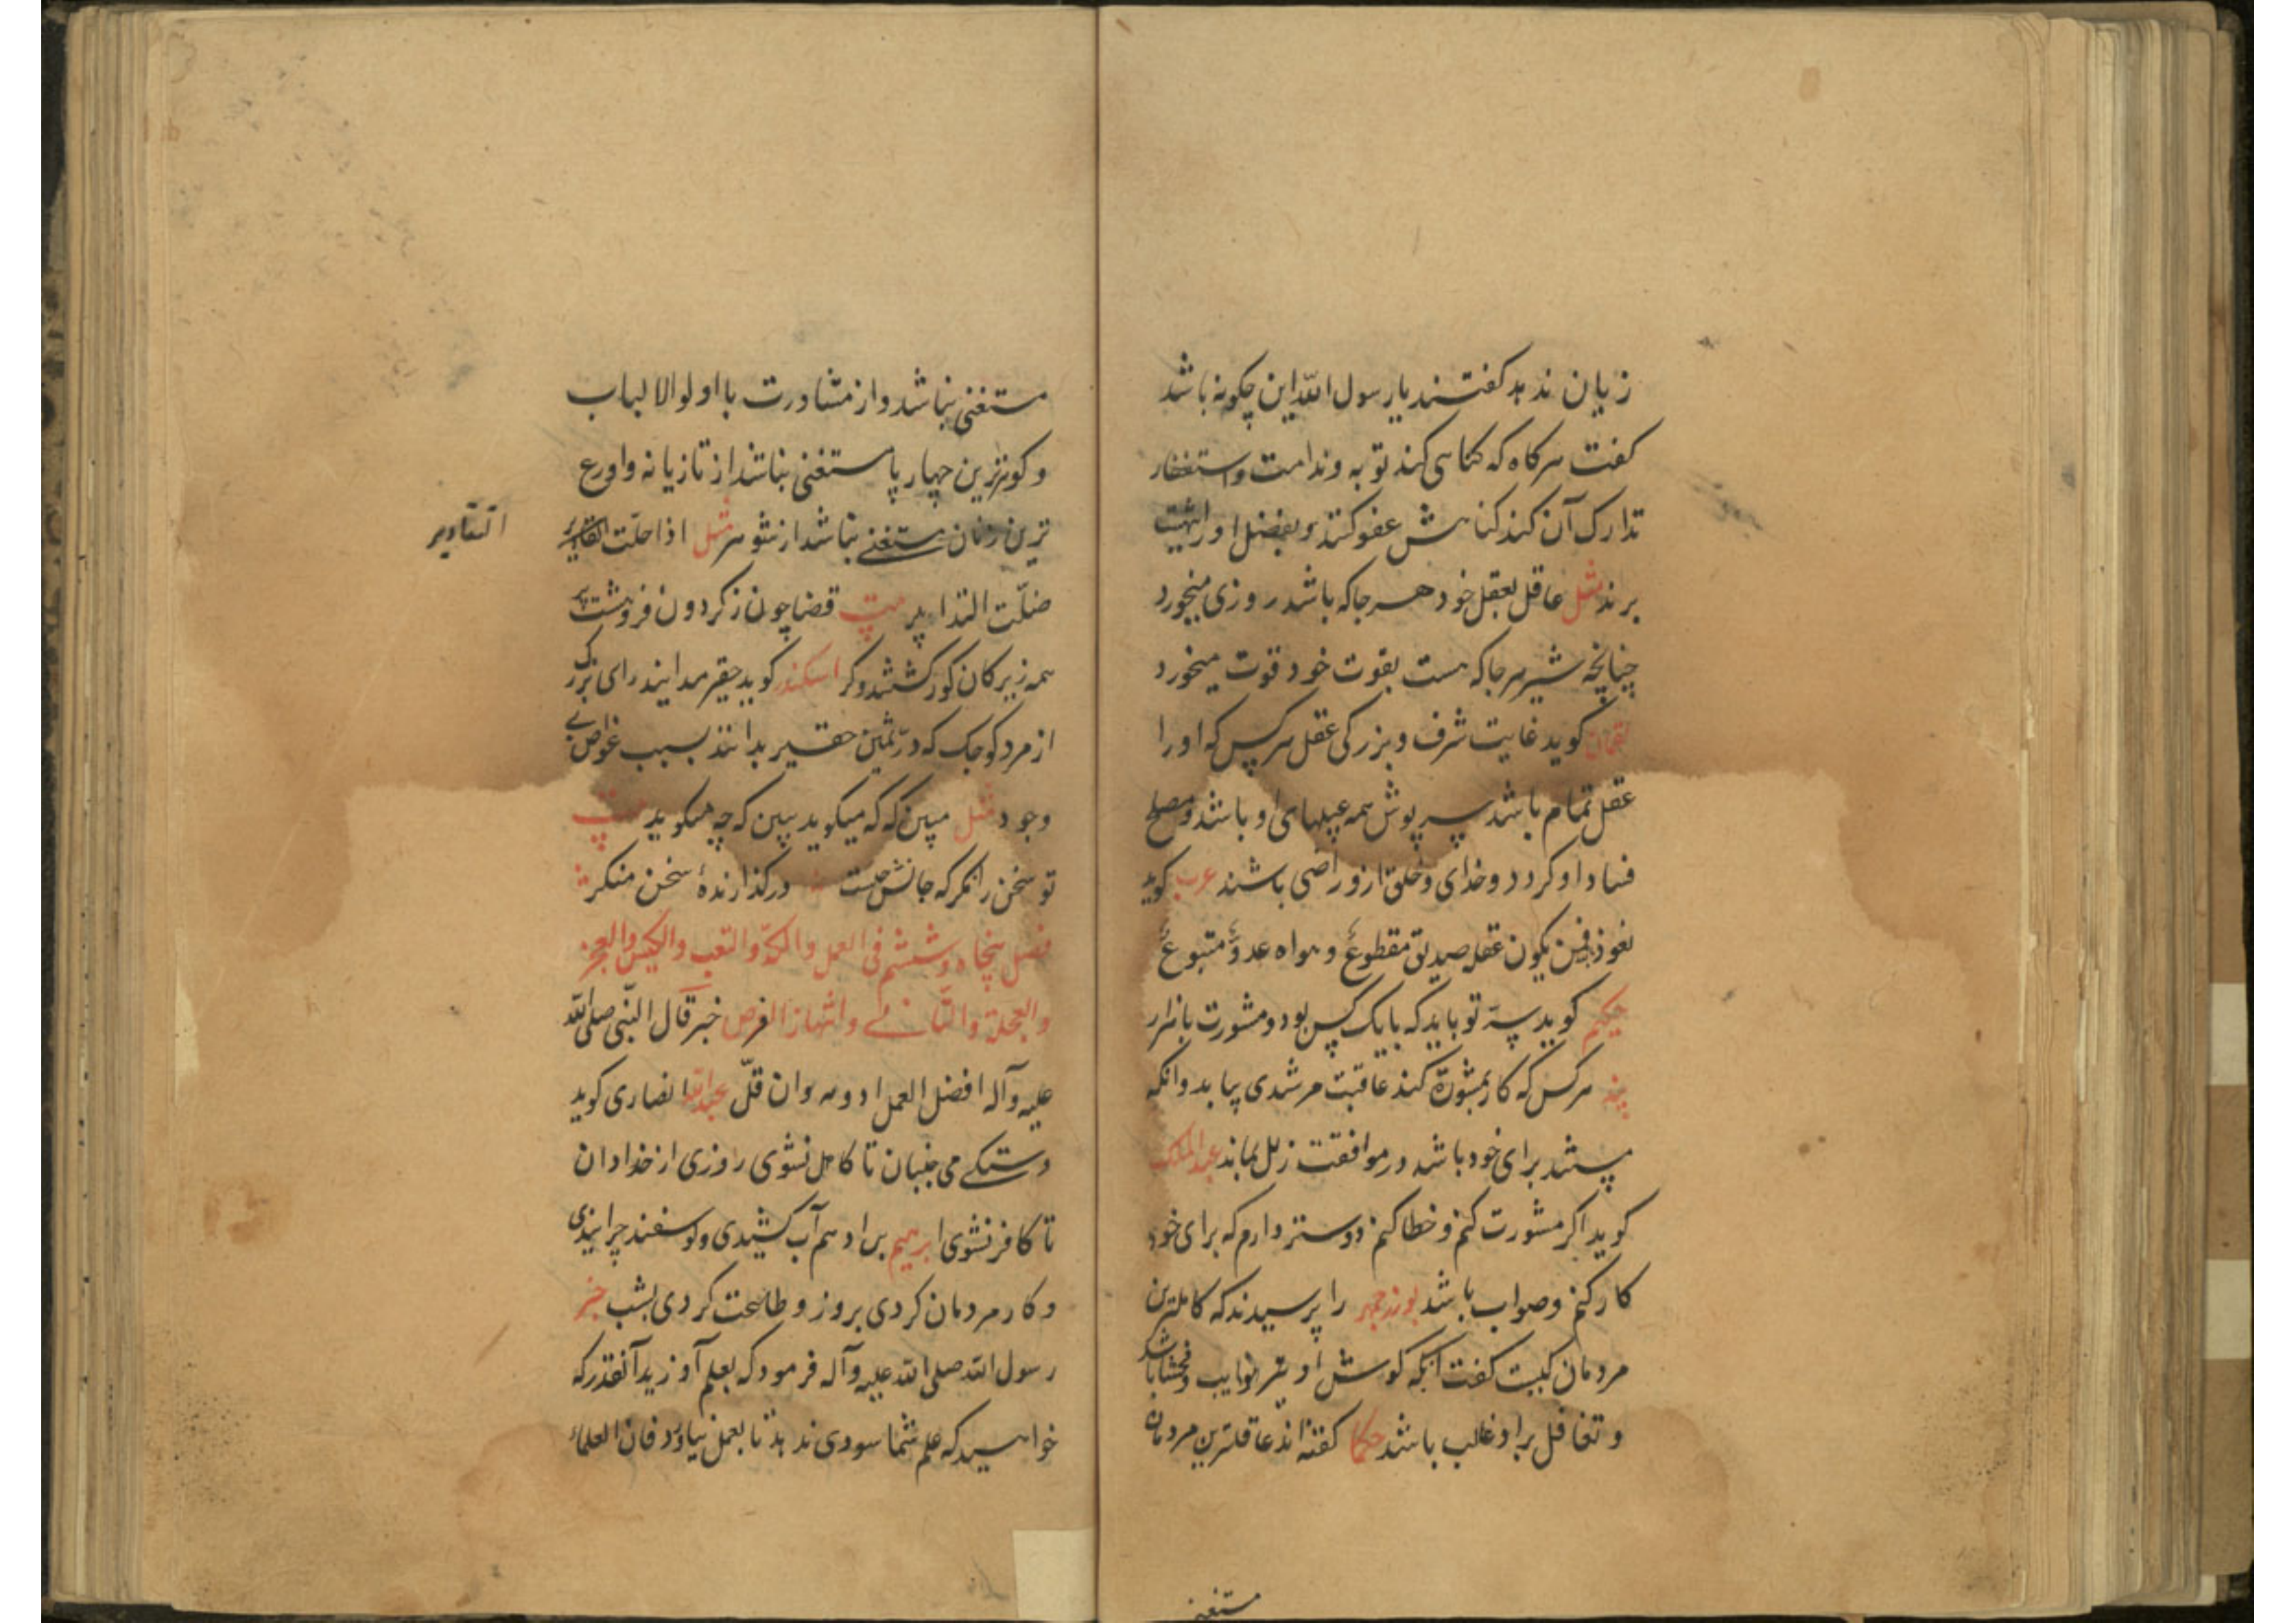 زیان ندهد کفتند یا رسول الله این چکونه باشد
کفت هرکاه که کناهی کند توبه و ندامت و استغفار
تدارک آن کند کناهش عفو کنند و بفضل او را بهشت
برند مثل عاقل بعقل خود هر جا که باشد روزی میخورد
چنانچه شیر هرجا که هست بقوت خود قوت میخورد
لقمان کوید غایت شرف و بزرکی عقل هرکس که او را
عقل تمام باشد سرپوش همه عیبهای او باشد و مصلح
فساد او کردد و خدای و خلق ازو راضی باشند عرب کوید
نعوذ من یکون عقله صدیق مقطوع و هواه عدو متبوع
حکیم کوید سر تو باید که با یک کس بود و مشورت با هزار
پند هرکس که کار بمشورة کند عاقبت مرشدی بیابد و انکه
پسند برای خود باشد در موافقت زلل بماند عبدالملک
کوید اکر مشورت کنم و خطا کنم دوستر دارم که برای خود
کار کنم و صواب باشد بوزرجمهر را پرسیدند که کاملترین
مردمان کیست کفت انکه کوش او بر نوایب و فحشا باشد
و تغافل برو غالب باشد حکما کفته اند عاقلترین مردمان
مستغنی
مستغنی نباشد و از مشاورت با اولو الالباب
و کوترین چهارپا مستغنی نباشد از تازیانه و اورع
ترین زنان مستغنی نباشد از شوهر مثل اذا حلّت التقادیر
التقادیر
ضلّت التدابیر بیت قضا چون ز کردون فروهشت پر
همه زیرکان کور کشتند و کر اسکندر کوید حقیر مدانید رای بزرک
از مرد کوچک که درّ ثمین حقیر بدانند بسبب غواص بی
وجود مثل مبین که که میکوید ببین که چه میکوید بیت
تو سخن را نکر که جانش چیست در کذارندهٔ سخن منکر
فصل پنجاه و ششم فی العمل والکدّ والتعب والکیس والعجز
والعجلة والتانی وانتهاز الفرص خبر قال النّبی صلی الله
علیه وآله افضل العمل ادومه وان قلّ عبدالله انصاری کوید
دستکی می جنبان تا کاهل نشوی روزی از خدا دان
تا کافر نشوی ابرهیم بن ادهم آب کشیدی و کوسفند چرانیدی
و کار مردمان کردی بروز و طاعت کردی بشب خبر
رسول الله صلی الله علیه وآله فرمود که بعلم آوزید آنقدر که
خواهید که علم شما سودی ندهد تا بعمل نیاورد فان العلماء